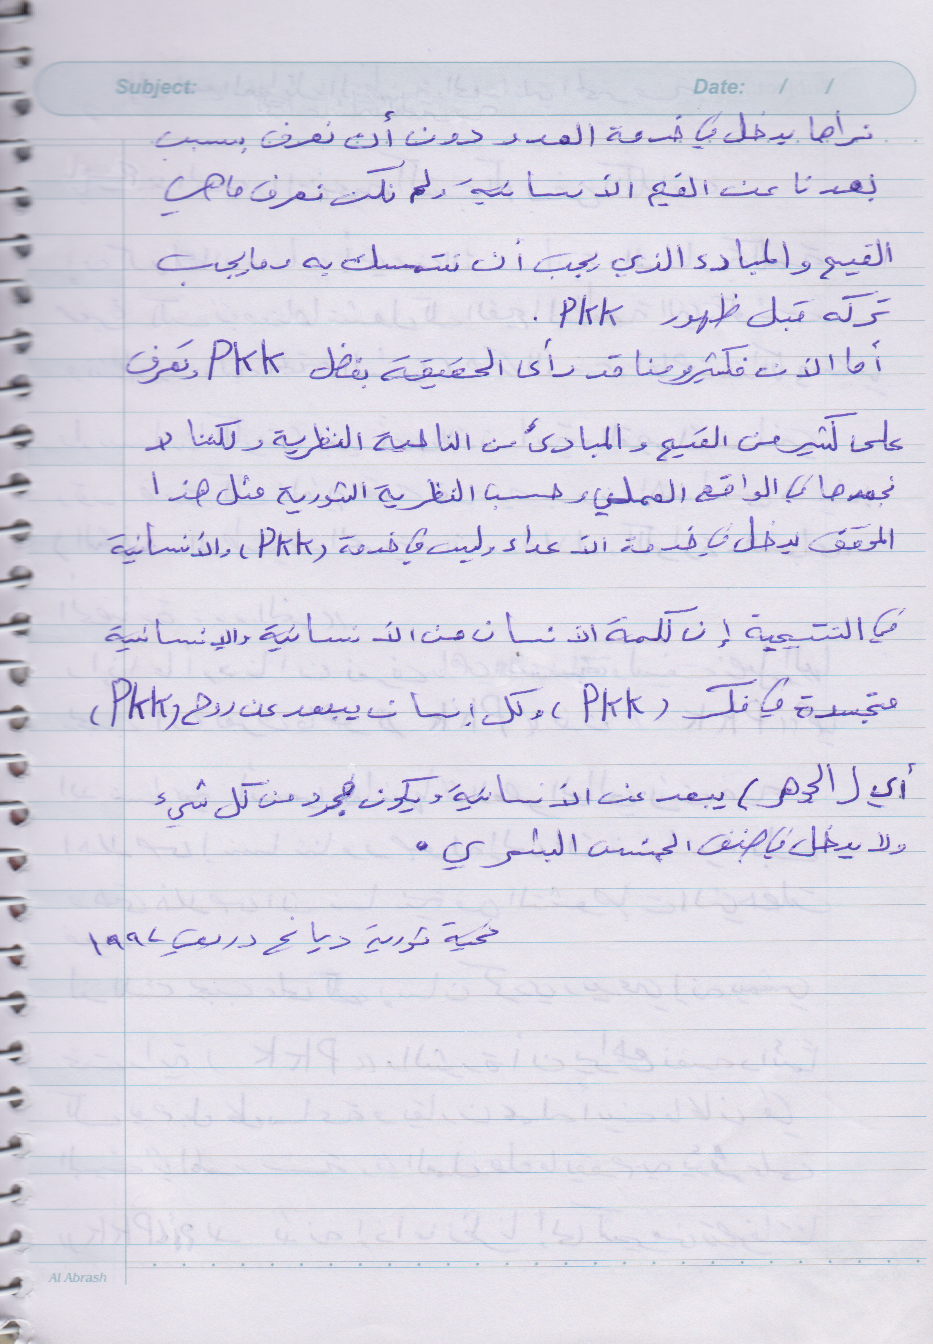 Subject: Date: / /
نراها يدخل في خدمة العدو دون أن نعرف بسبب
بعدنا عن القيم الانسانية ولم نكن نعرف ماهي
القيم والمبادء الذي يجب أن نتمسك به وما يجب
تركه قبل ظهور PKK .
أما الان فكثير منا قد رأى الحقيقة بفضل PKK وتعرف
على كثير من القيم والمبادئ من الناحية النظرية ولكننا لا
نجدها في الواقع العملي وحسب النظرية الثورية مثل هذا
الموقف يدخل في خدمة الاعداء وليس في خدمة (PKK) والانسانية
في النتيجية إن كلمة الانسان من الانسانية والإنسانية
متجسدة في فكر (PKK) وكل إنسان يبتعد عن روح (PKK)
أي (الجوهر) يبعد عن الانسانية ويكون مجرد من كل شيء
ولا يدخل في صنف الجنس البشري .
تحية ثورية ديانج ديريك ١٩٩٧
Al Abrash